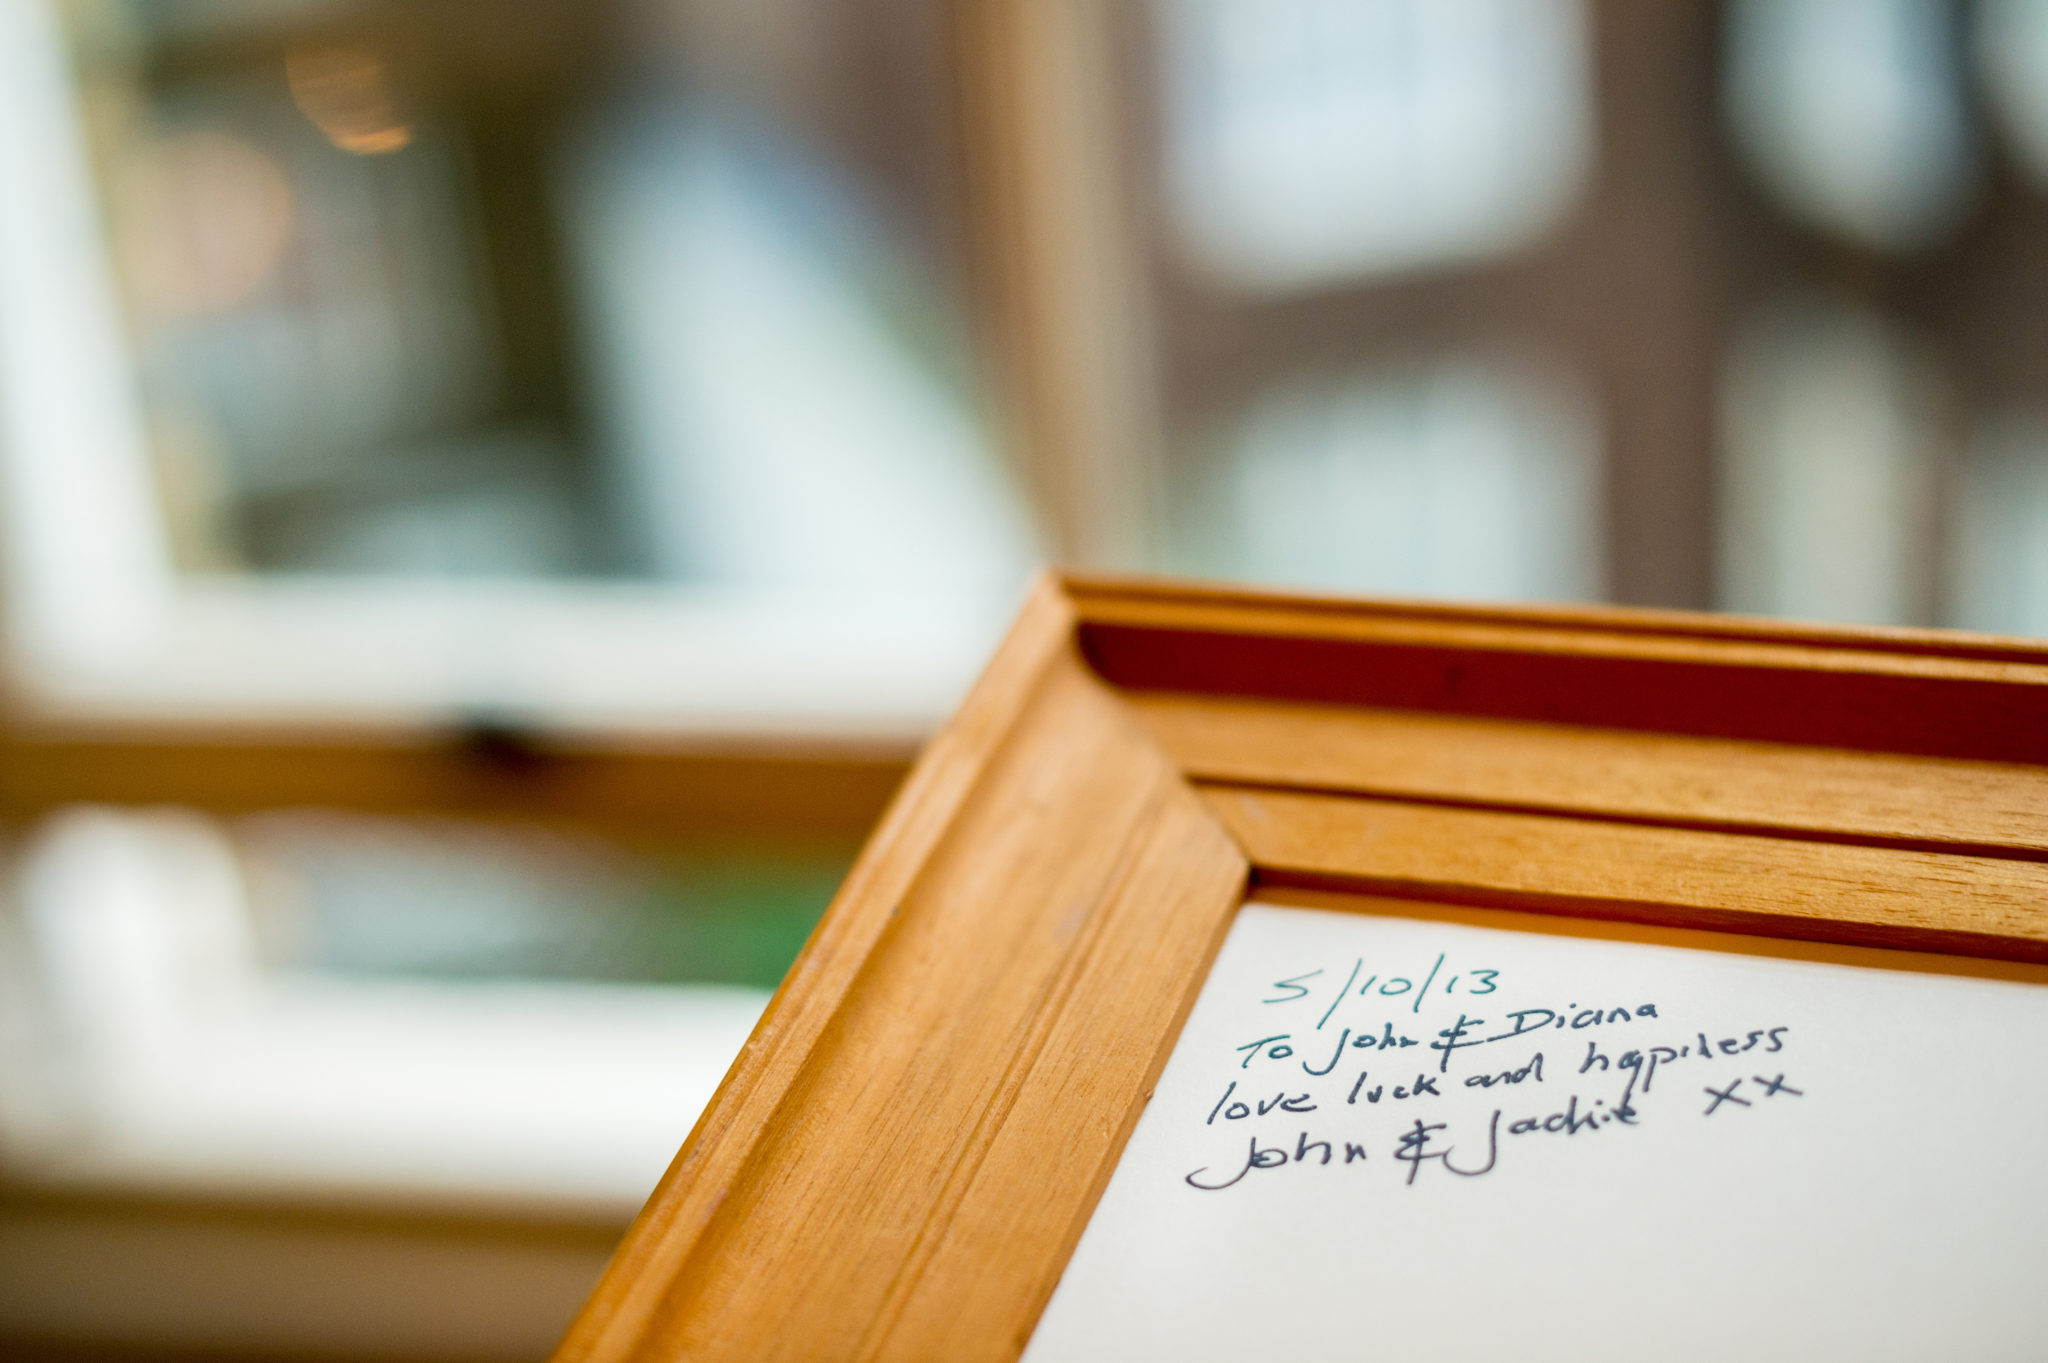 5/10/13
To John & Diana
love luck and happiness
John & Jackie xx